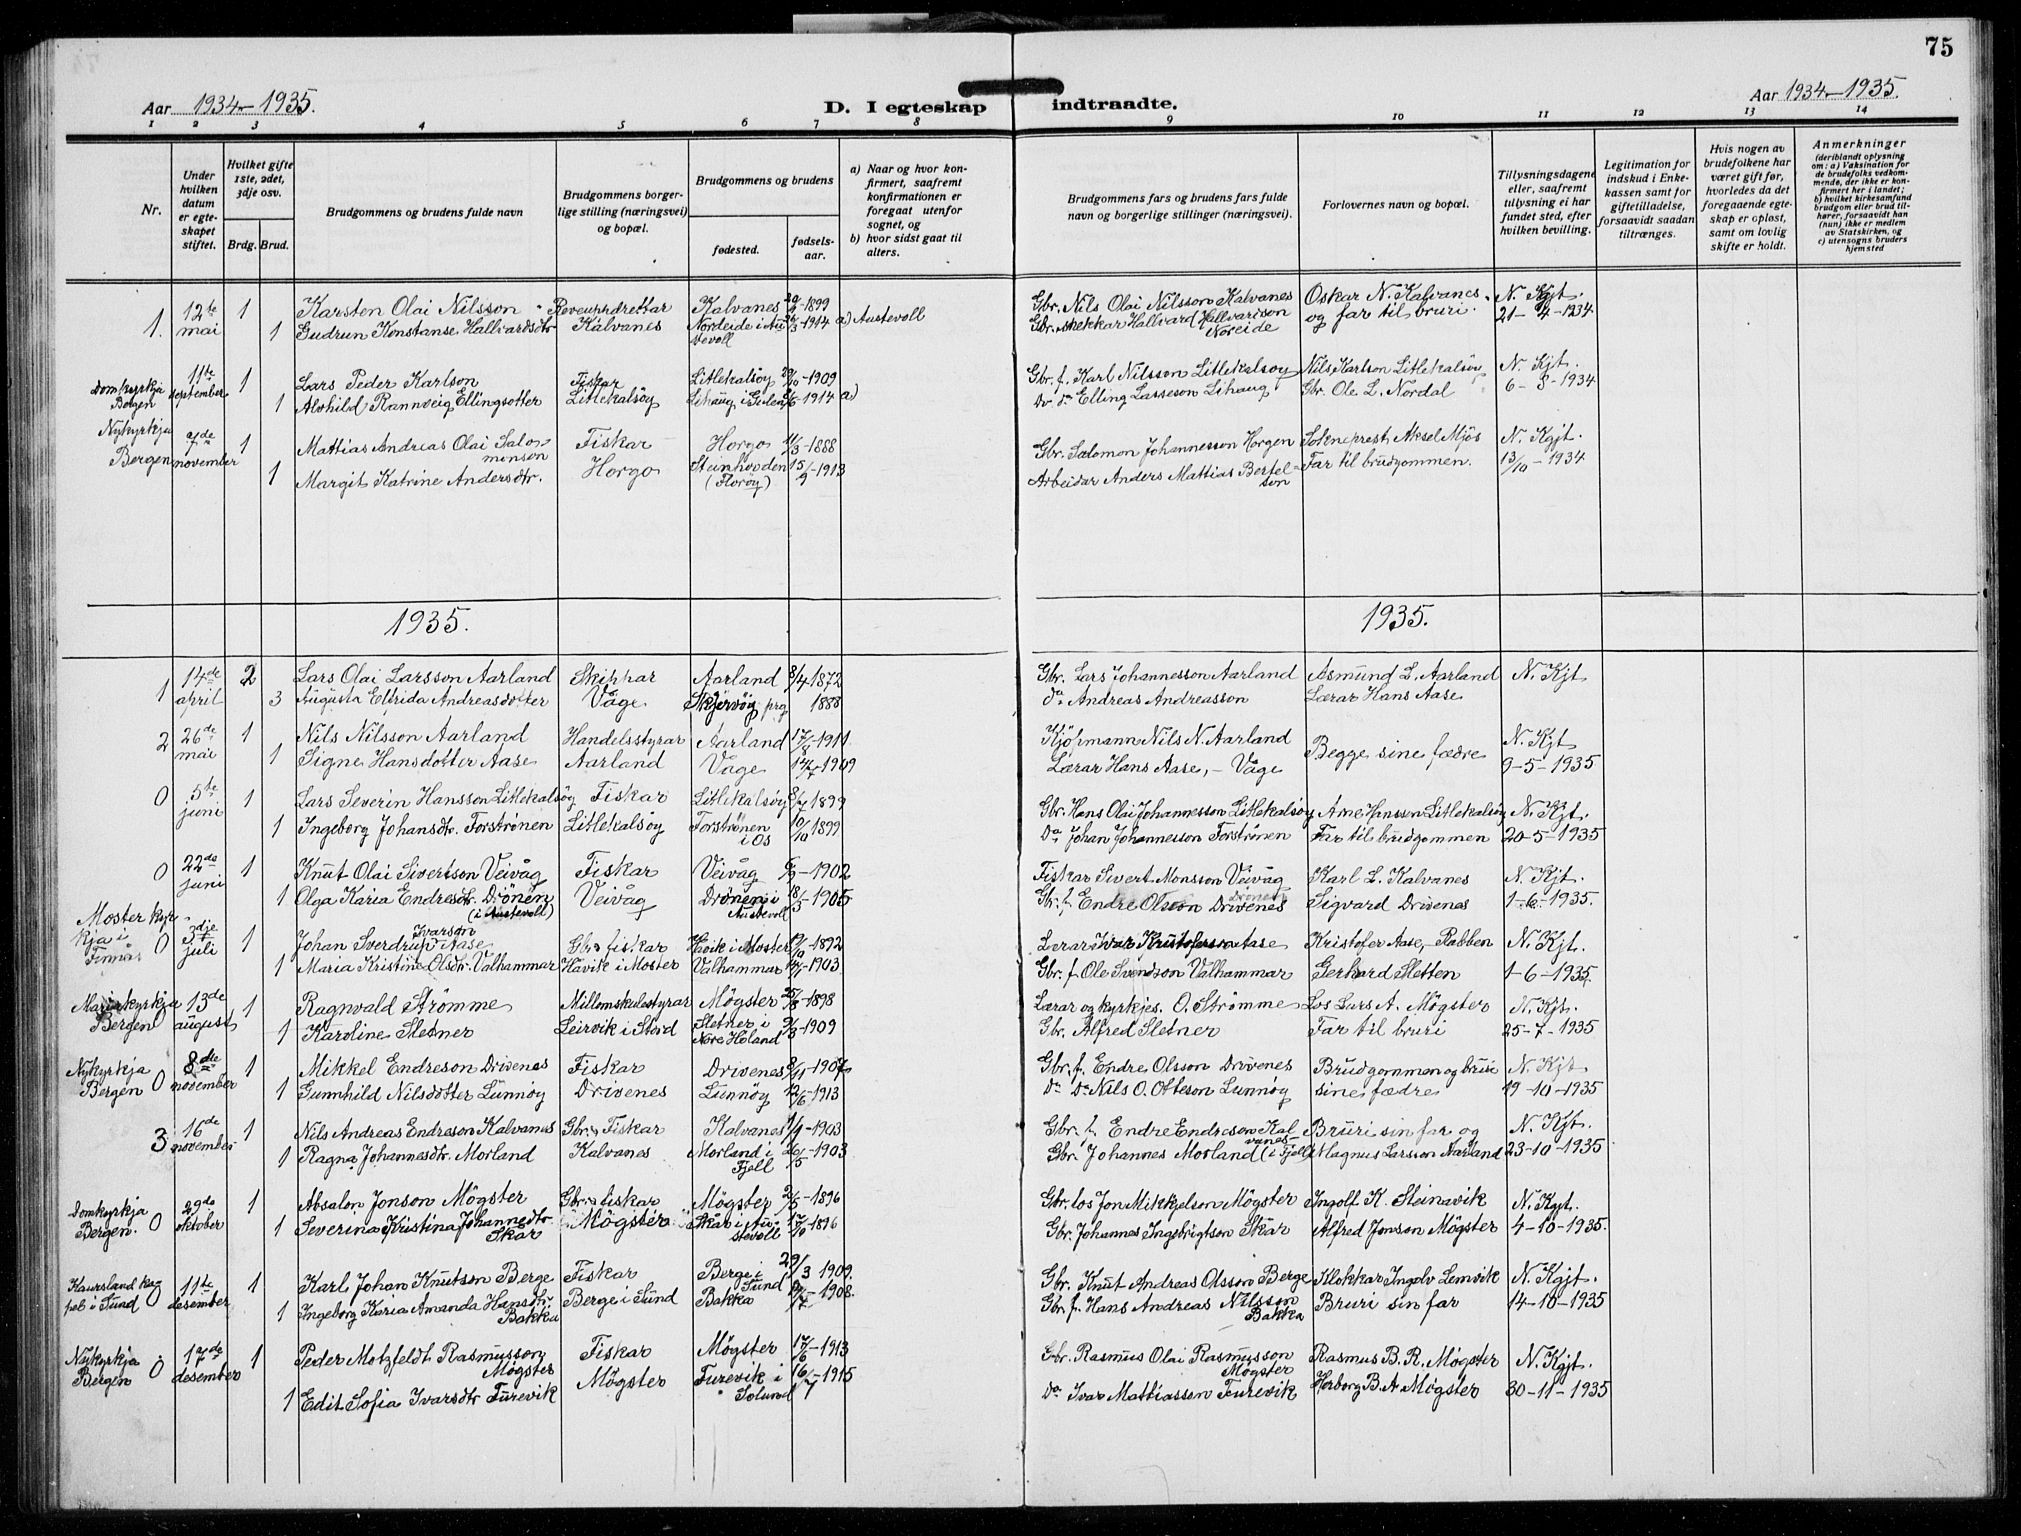 75
Aar 1934-1935.
D. I egteskap indtraadte.
Aar 1934-1935.
1 2 3 4 5 6 7 8 9 10 11 12 13 14
Nr.
Under hvilken datum er egteskapet stiftet.
Hvilket gifte 1ste, 2det, 3dje osv.
Brdg. Brud.
Brudgommens og brudens fulde navn
Brudgommens borgerlige stilling (næringsvei) og bopæl.
Brudgommens og brudens
fødested.
fødselsaar.
a) Naar og hvor konfirmert, saafremt konfirmationen er foregaat utenfor sognet, og
b) hvor sidst gaat til alters.
Brudgommens fars og brudens fars fulde navn og borgerlige stillinger (næringsvei).
Forlovernes navn og bopæl.
Tillysningsdagene eller, saafremt tillysning ei har fundet sted, efter hvilken bevilling.
Legitimation for indskud i Enkekassen samt for giftetilladelse, forsaavidt saadan tiltrænges.
Hvis nogen av brudefolkene har været gift før, hvorledes da det foregaaende egteskap er opløst, samt om lovlig skifte er holdt.
Anmerkninger
(deriblandt oplysning om: a) Vaksination for de brudefolks vedkommende, der ikke er konfirmert her i landet; b) hvilket kirkesamfund brudgom eller brud tilhører, forsaavidt han (hun) ikke er medlem av Statskirken, og c) utensogns bruders hjemsted
12te 1 Karsten Olai Nilsson Kalvanes 1899 Gbr. Nils Olai Nilsson Kalvanes Oskar N. Kalvanes N. Kjt.
1. mai 1 Gudrun Konstanse Hallvardsdtr Kalvanes Nordeide i Austevoll 1914 a) Austevoll Hallvard Hallvarison Noreide og far til bruri. 21-4-1934
Domkyrkja Bergen 11te september 1 Lars Peder Karlson Fiskar Litlekalsøy 1909 Gbr. f. Karl Nilsson Litlekalsøy Nils Karlson Litlekalsøy N. Kjt.
1 Alvhild Rannveig Ellingsotter Litlekalsøy Lihaug 1914 a) Elling Lasseson Lihaug Gbr. Ole L. Nordal 6-8-1934
Nykyrkja Bergen 7de november 1 Mattias Andreas Olai Salomonson Fiskar Horgo 11/3-1888 Gbr. Salomon Johannesson Horgen Sokneprest Aksel Mjøs N. Kgjt.
1 Margit Katrine Andersdtr. Horgo Steinhovden (Florøy) 15/9-1913 Arbeidar Anders Mattias Bertelson Far til brudgommen. 13/10-1934
1935. 1935.
14de 2 Lars Olai Larsson Aarland Skippar Aarland 8/4 1872 Gbr. Lars Johannesson Aarland Asmund L. Aarland N. Kjt
1 april 3 Augusta Elfrida Andreasdotter Våge Skjervøy prg 1888 da Andreas Andreasson Lærar Hans Aase
2 26de mai 1 Nils Nilsson Aarland Handelsstyrar Aarland 1911 Kjøpmann Nils N. Aarland Begge sine fædre N. Kjt
1 Signe Hansdotter Aase Aarland Våge 1909 Lærar Hans Aase, - Våge 9-5-1935
0 5te juni 1 Lars Severin Hansson Litlekalsøy Fiskar Litlekalsøy 1899 Gbr. Hans Olai Johannesson Litlekalsøy Arne Hansson Litlekalsøy N. Kjt.
1 Ingeborg Johansdtr. Forstrønen Litlekalsøy Forstrønen i Os 10/10 1899 Da Johan Johannesson Forstrønen Far til brudgommen 20-5-1935
0 22de juni 1 Knut Olai Sivertson Veivåg Fiskar Veivåg 1902 Fiskar Sivert Monsson Veivåg Karl L. Kalvanes N. Kjt.
1 Olga Karia Endresdtr. Drönen (i Austevoll) Veivåg Drönen i Austevoll 18/5-1905 Gbr. f. Endre Olsson Drivenes Sigvard Drivenes 1-6-1935.
Moster kyrkja i Finnås 0 3dje juli 1 Johan Sverdrup Ivarson Aase Gbr. fiskar Håvik i Moster 1892 Lærar Ivar Kristoferson Aase Kristofer Aase, - Rabben N. Kjt.
1 Maria Kristine Olsdtr. Valhammar Håvik i Moster Valhammar 1903 Gbr. f. Ole Svendson Valhammar Gerhard Sletten 1-6-1935
Mariakyrkja Bergen 0 13de august 1 Ragnvald Strømme Millomskulestyrar Møgster 1898 Lærar og kyrkjes. O. Strømme Los Lars A. Møgster N. Kjt.
1 Karoline Sletner Leirvik i Stord Sletner i Nore Holand 1909 Gbr. Alfred Sletner Far til bruri 25-7-1935
Nykyrkja Bergen 0 8de november 1 Mikkel Endreson Drivenes Fiskar Drivenes 1907 Gbr. f. Endre Olsson Drivenes Brudgommen og bruri N. Kjt
1 Gunnhild Nilsdotter Lunnøy Drivenes Lunnøy 1913 Da Da Nils O. Otteson Lunnøy sine fædre 19-10-1935
3 16de november 1 Nils Andreas Endreson Kalvanes Gbr. Fiskar Kalvanes 1903 Gbr. f. Endre Endreson Kalvanes Bruri sin far og N. Kjt.
1 Ragna Johannesdtr. Morland Kalvanes Morland i Fjell 26/5-1903 Gbr. Johannes Morland (i Fjell) Magnus Larsson Aarland 23-10-1935
Domkyrkja Bergen. 0 29de oktober 1 Absalon Jonson Møgster Gbr. fiskar Møgster 1896 Gbr. los Jon Mikkjelson Møgster Ingolf K. Steinavik N. Kgt.
1 Severina Kristina Johannedtr Skår Møgster Skår i Austevoll 1896 Gbr. Johannes Ingebrigtson Skår Alfred Jonson Møgster 4-10-1935.
Kausland kapel i Sund 0 11te desember 1 Karl Johan Knutson Berge Fiskar Berge i Sund 29/3 1909. Gbr. Knut Andreas Olsson Berge Klokkar Ingolv Lemvik N. Kgjt.
1 Ingeborg Karia Amanda Hansdtr Bakka Berge i Sund Bakka 1908. Gbr. f. Hans Andreas Nilsson Bakka Bruri sin far 14-10-1935
Nykyrkja Bergen 0 17de desember 1 Peder Motzfeldt Rasmusson Møgster Fiskar Møgster 17/6-1913 Gbr. Rasmus Olai Rasmusson Møgster Rasmus B. R. Møgster N. Kgjt.
1 Edit Sofia Ivarsdtr Furevik Møgster Furevik i Solund 16/7-1915 Da Ivar Mattiassen Furevik Herborg B. A. Møgster 30-11-1935